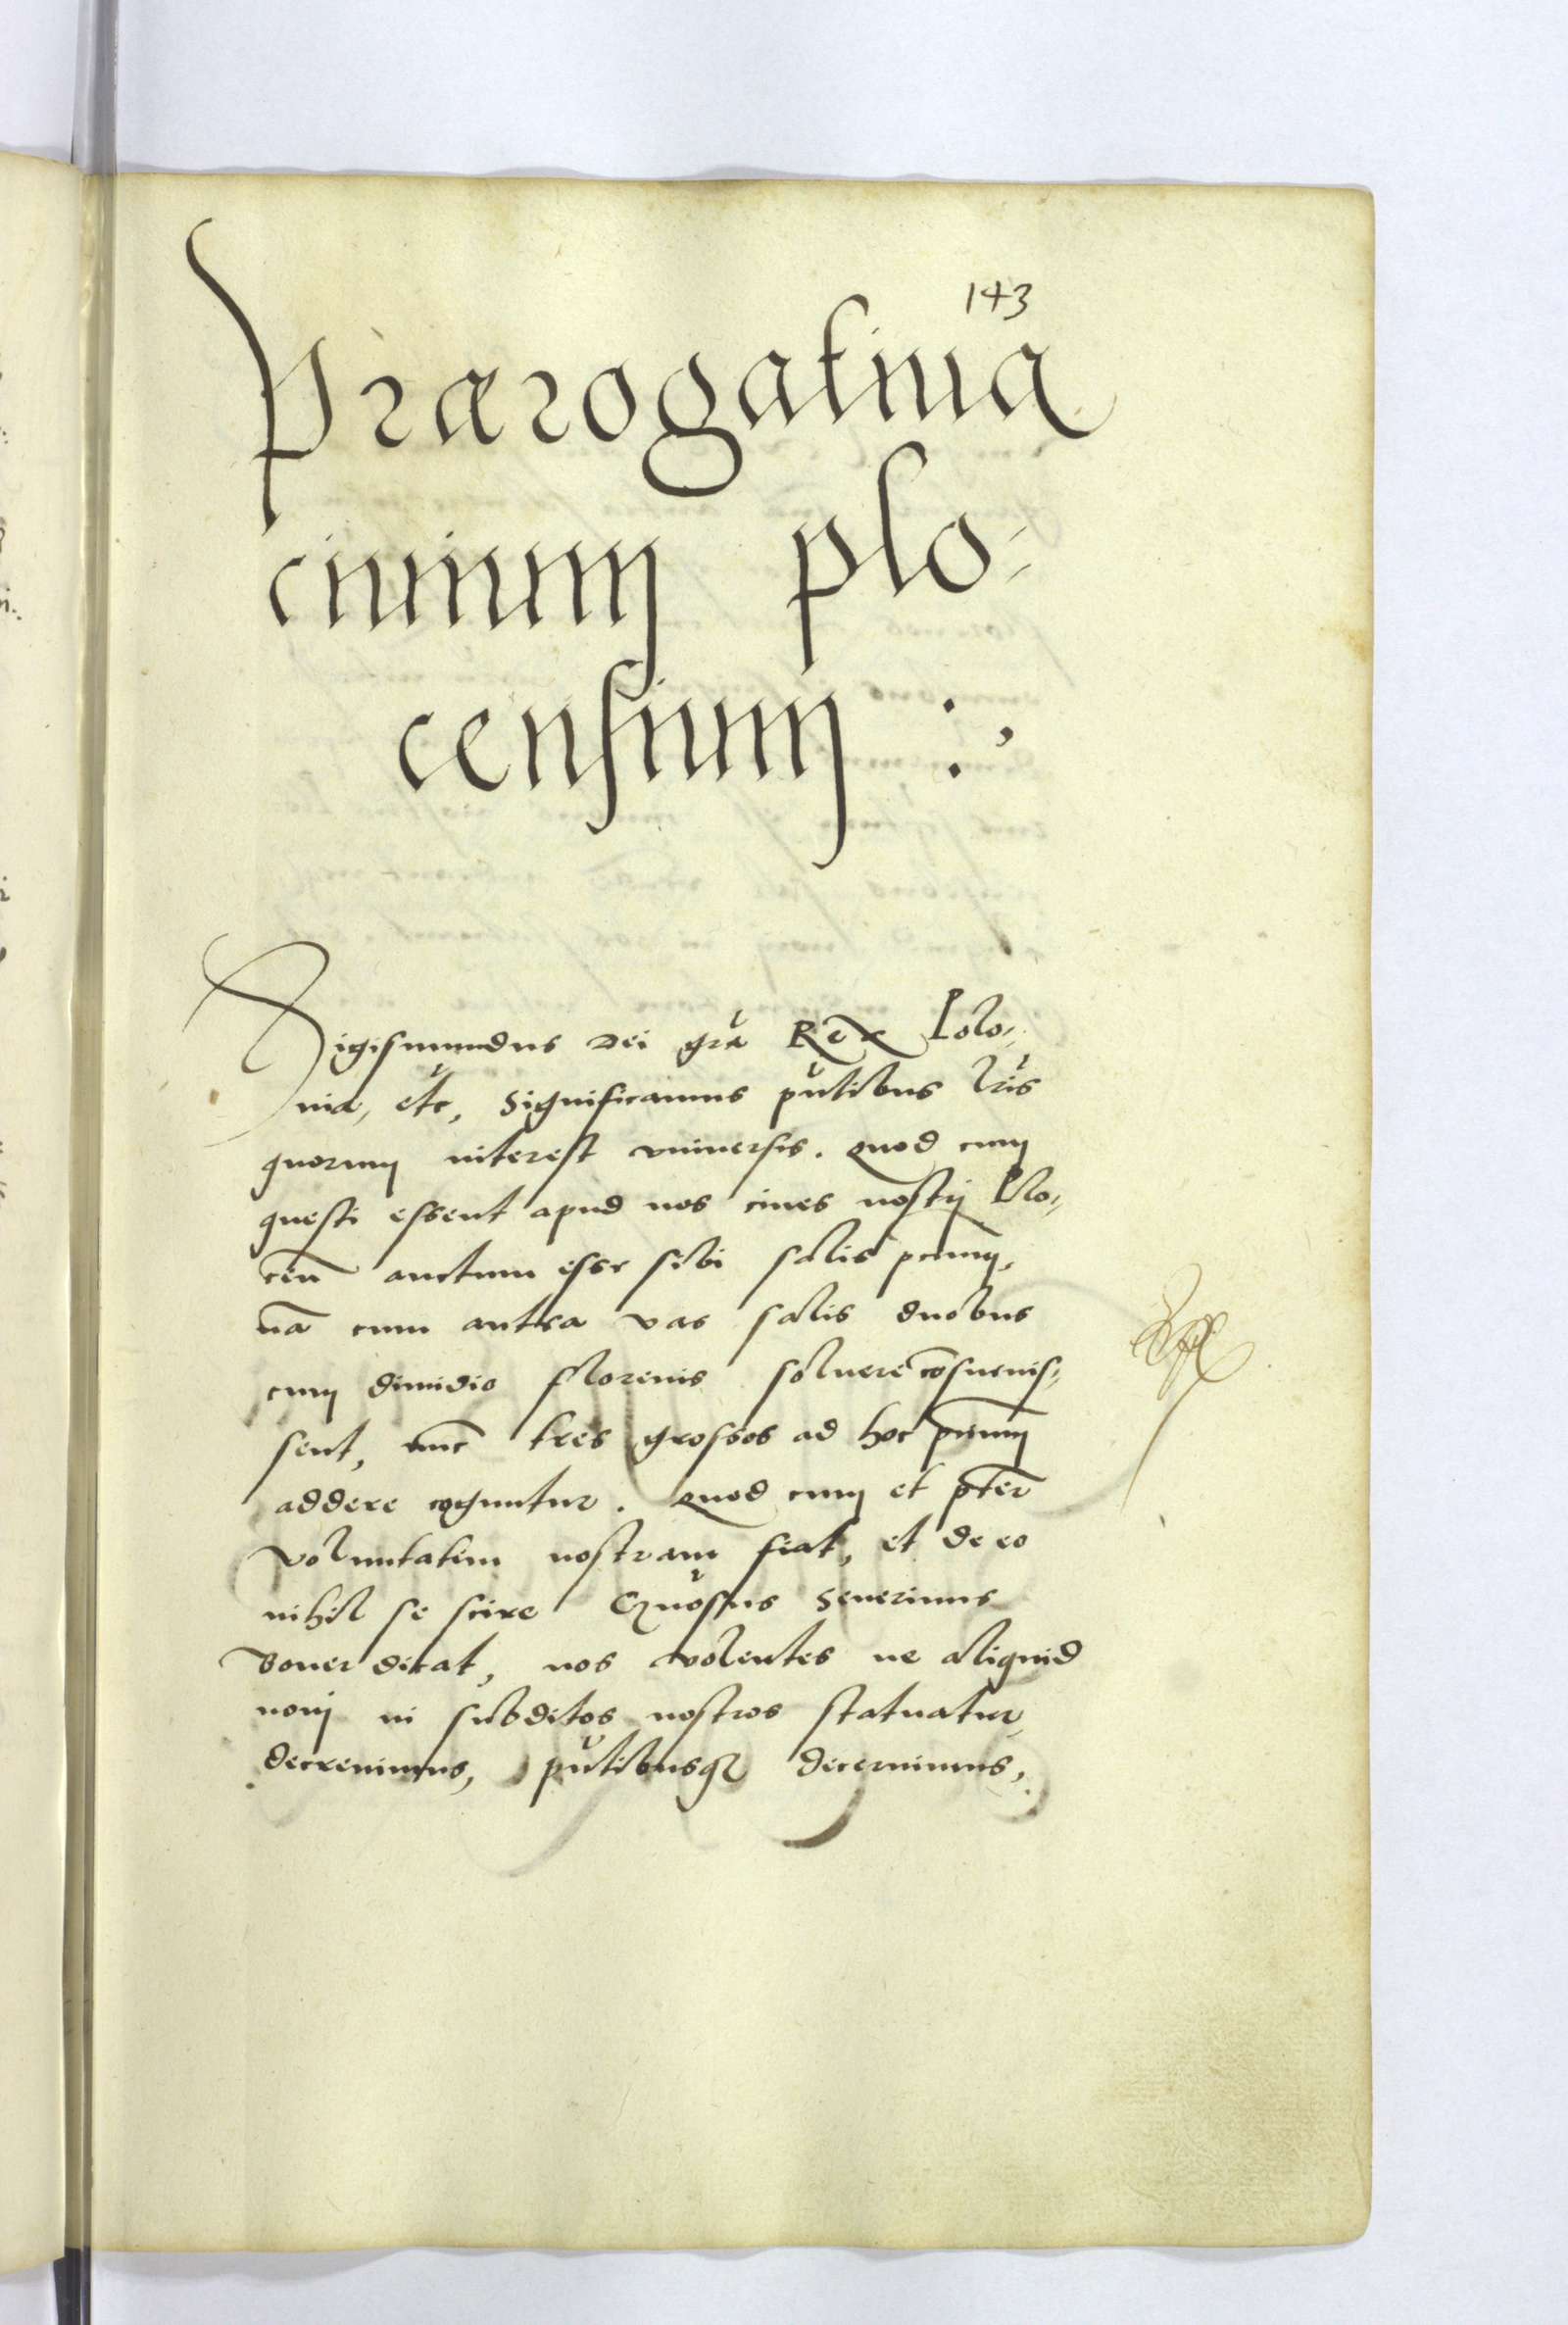 143
Prærogatiua
ciuium plo-
censium :,
Sigismundus Dei gra Rex Polo-
niæ, etc, Significamus pntibus lris
quorum interest vniuersis. Quod cum
questi essent apud nos ciues nostri Plo-
cen auctum esse sibi salis pcium,
na cum antea vas salis duobus
cum dimidio florenis soluere cosueuis-
sent, nunc tres grossos ad hoc pcium
addere coguntur. Quod cum et pter
voluntatem nostram fiat, et de eo
nihil se scire Gnosus Seuerinus
Boner dicat, nos volentes ne aliquid
noui in subditos nostros statuatur,
decreuimus, pntibusq decernimus,